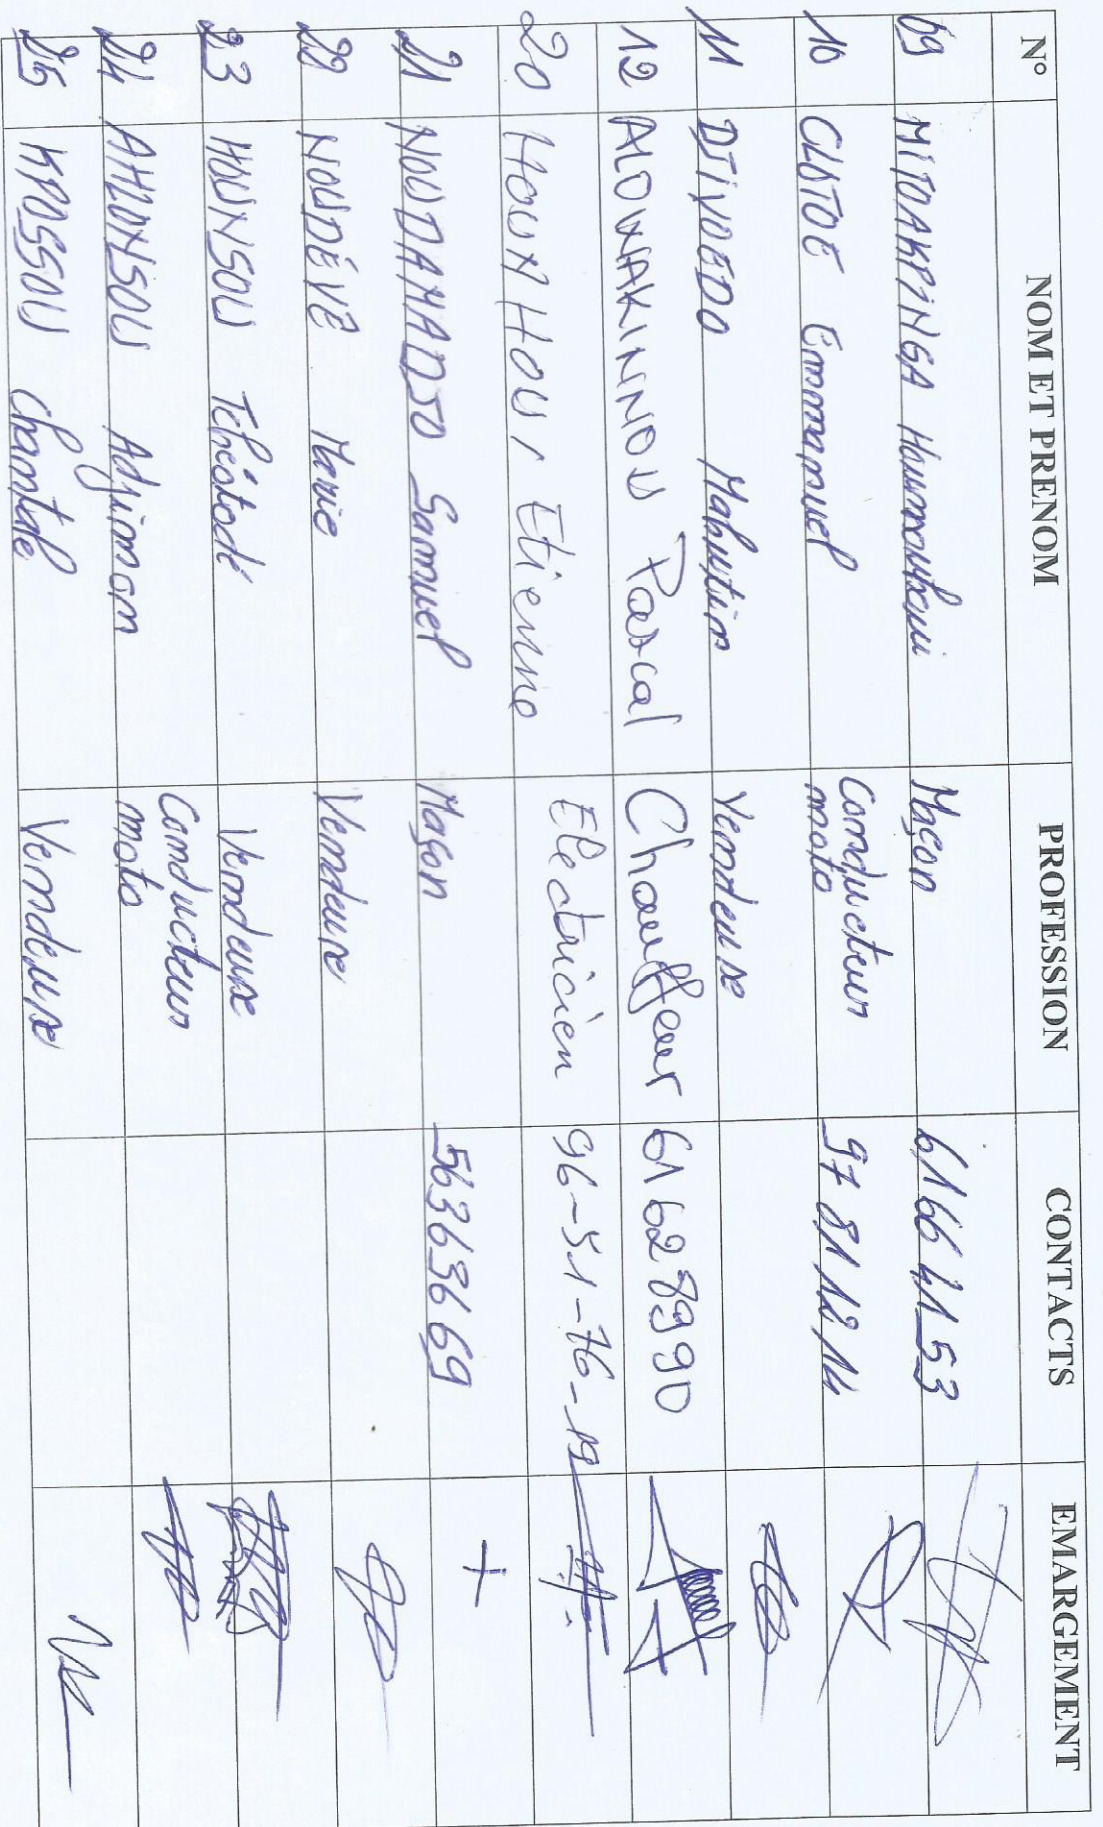 N° NOM ET PRENOM PROFESSION CONTACTS EMARGEMENT
09 MITOAKPINGA Maçon 61664153
10 CLOTOE Emmanuel Conducteur moto 97811214
11 DJIVOEDO Mahutin Vendeuse
12 ALOWAKINNOU Pascal Chauffeur 61628990
20 HOUNHOUI Etienne Electricien 96-51-76-19
21 NOUDAHADJO Samuel Maçon 56363669
22 NOUDÉVÉ Marie Vendeuse
23 HOUNSOU Vendeuse
24 AHLONSOU Adjimon Conducteur moto
25 KPOSSOU Chantale Vendeuse